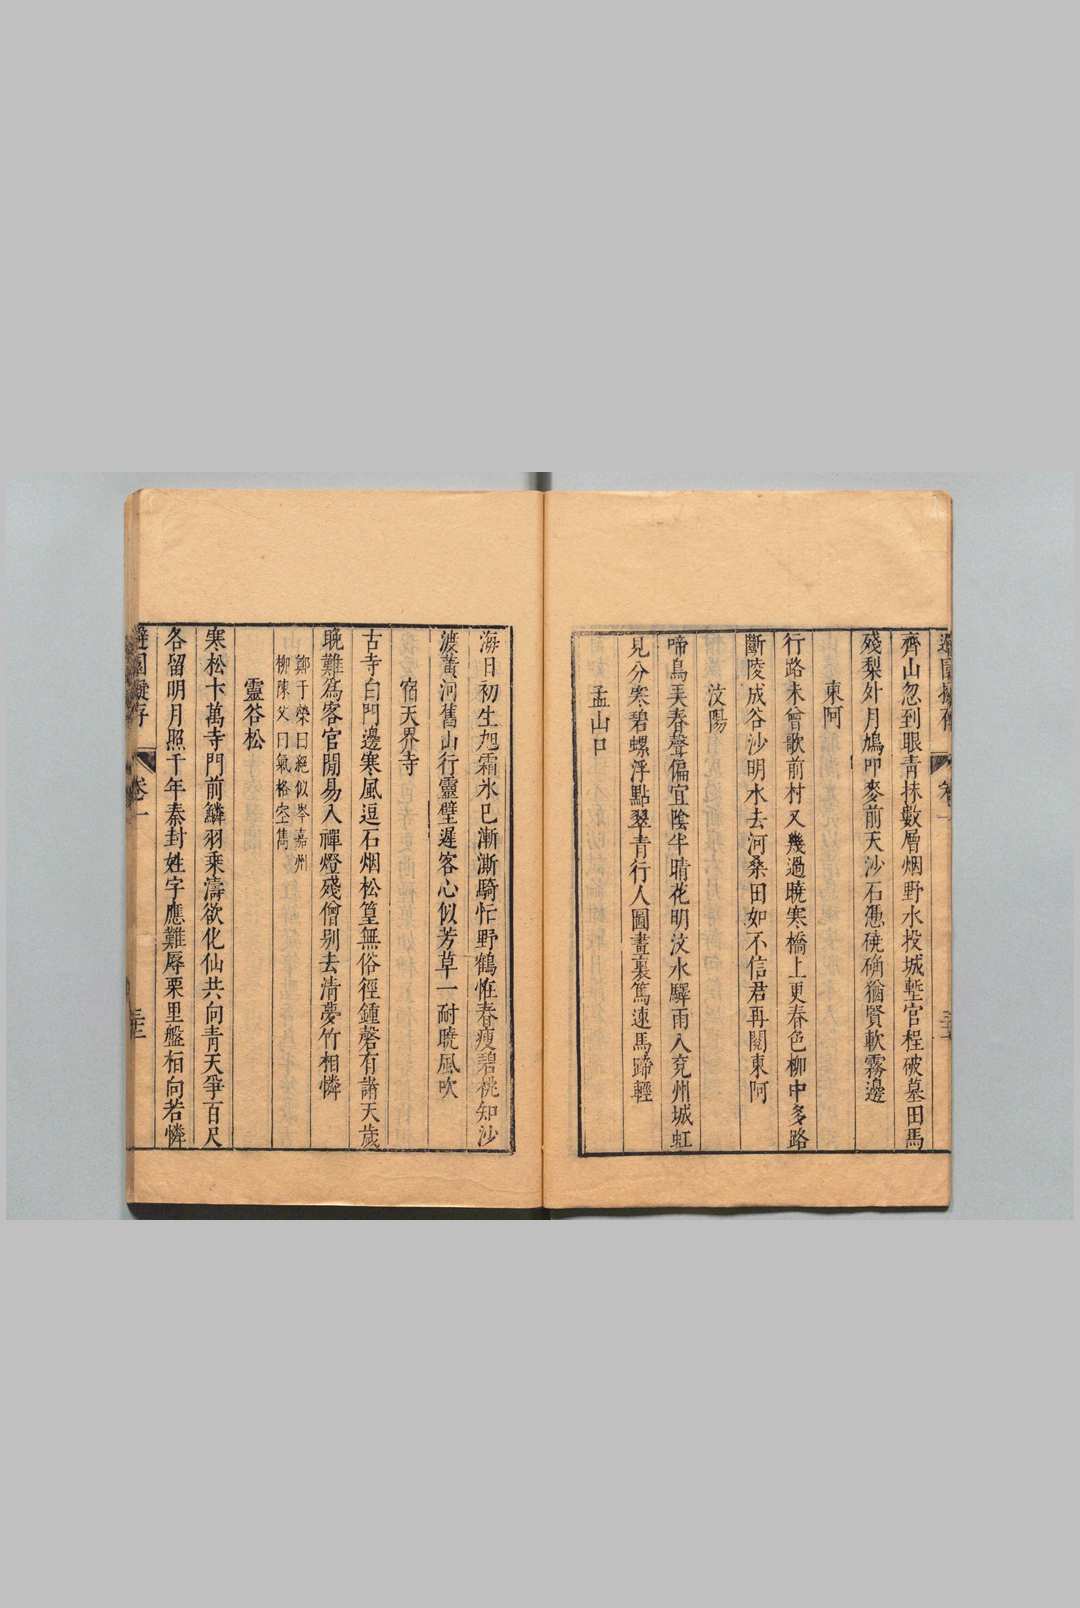 齊山忽到眼青抹數層烟野水投城塹官程破墓田馬
殘梨外月鳩叩麥前天沙石憑磽确猶賢軟霧邊
東阿
行路未曾歌前村又幾過曉寒橋上更春色柳中多路
斷陵成谷沙明水去河桑田如不信君再閱東阿
汶陽
啼鳥美春聲偏宜陰半晴花明汶水驛雨入兗州城虹
見分寒碧螺浮點翠青行人圖畫裏篤速馬蹄輕
孟山口
海日初生旭霜氷巳漸澌騎怯野鶴惟春瘦碧桃知沙
渡黃河舊山行靈壁遲客心似芳草一耐曉風吹
宿天界寺
古寺白門邊寒風逗石烟松篁無俗徑鍾磬有諸天歲
晚難爲客官閒易入禪燈殘僧別去清夢竹相憐
鄭于榮曰絕似岑嘉州
柳陳父曰氣格空雋
靈谷松
寒松十萬寺門前鱗羽乘濤欲化仙共向靑天爭百尺
各留明月照千年秦封姓字應難辱栗里盤桓向若憐
避園擬存
卷一
三十二